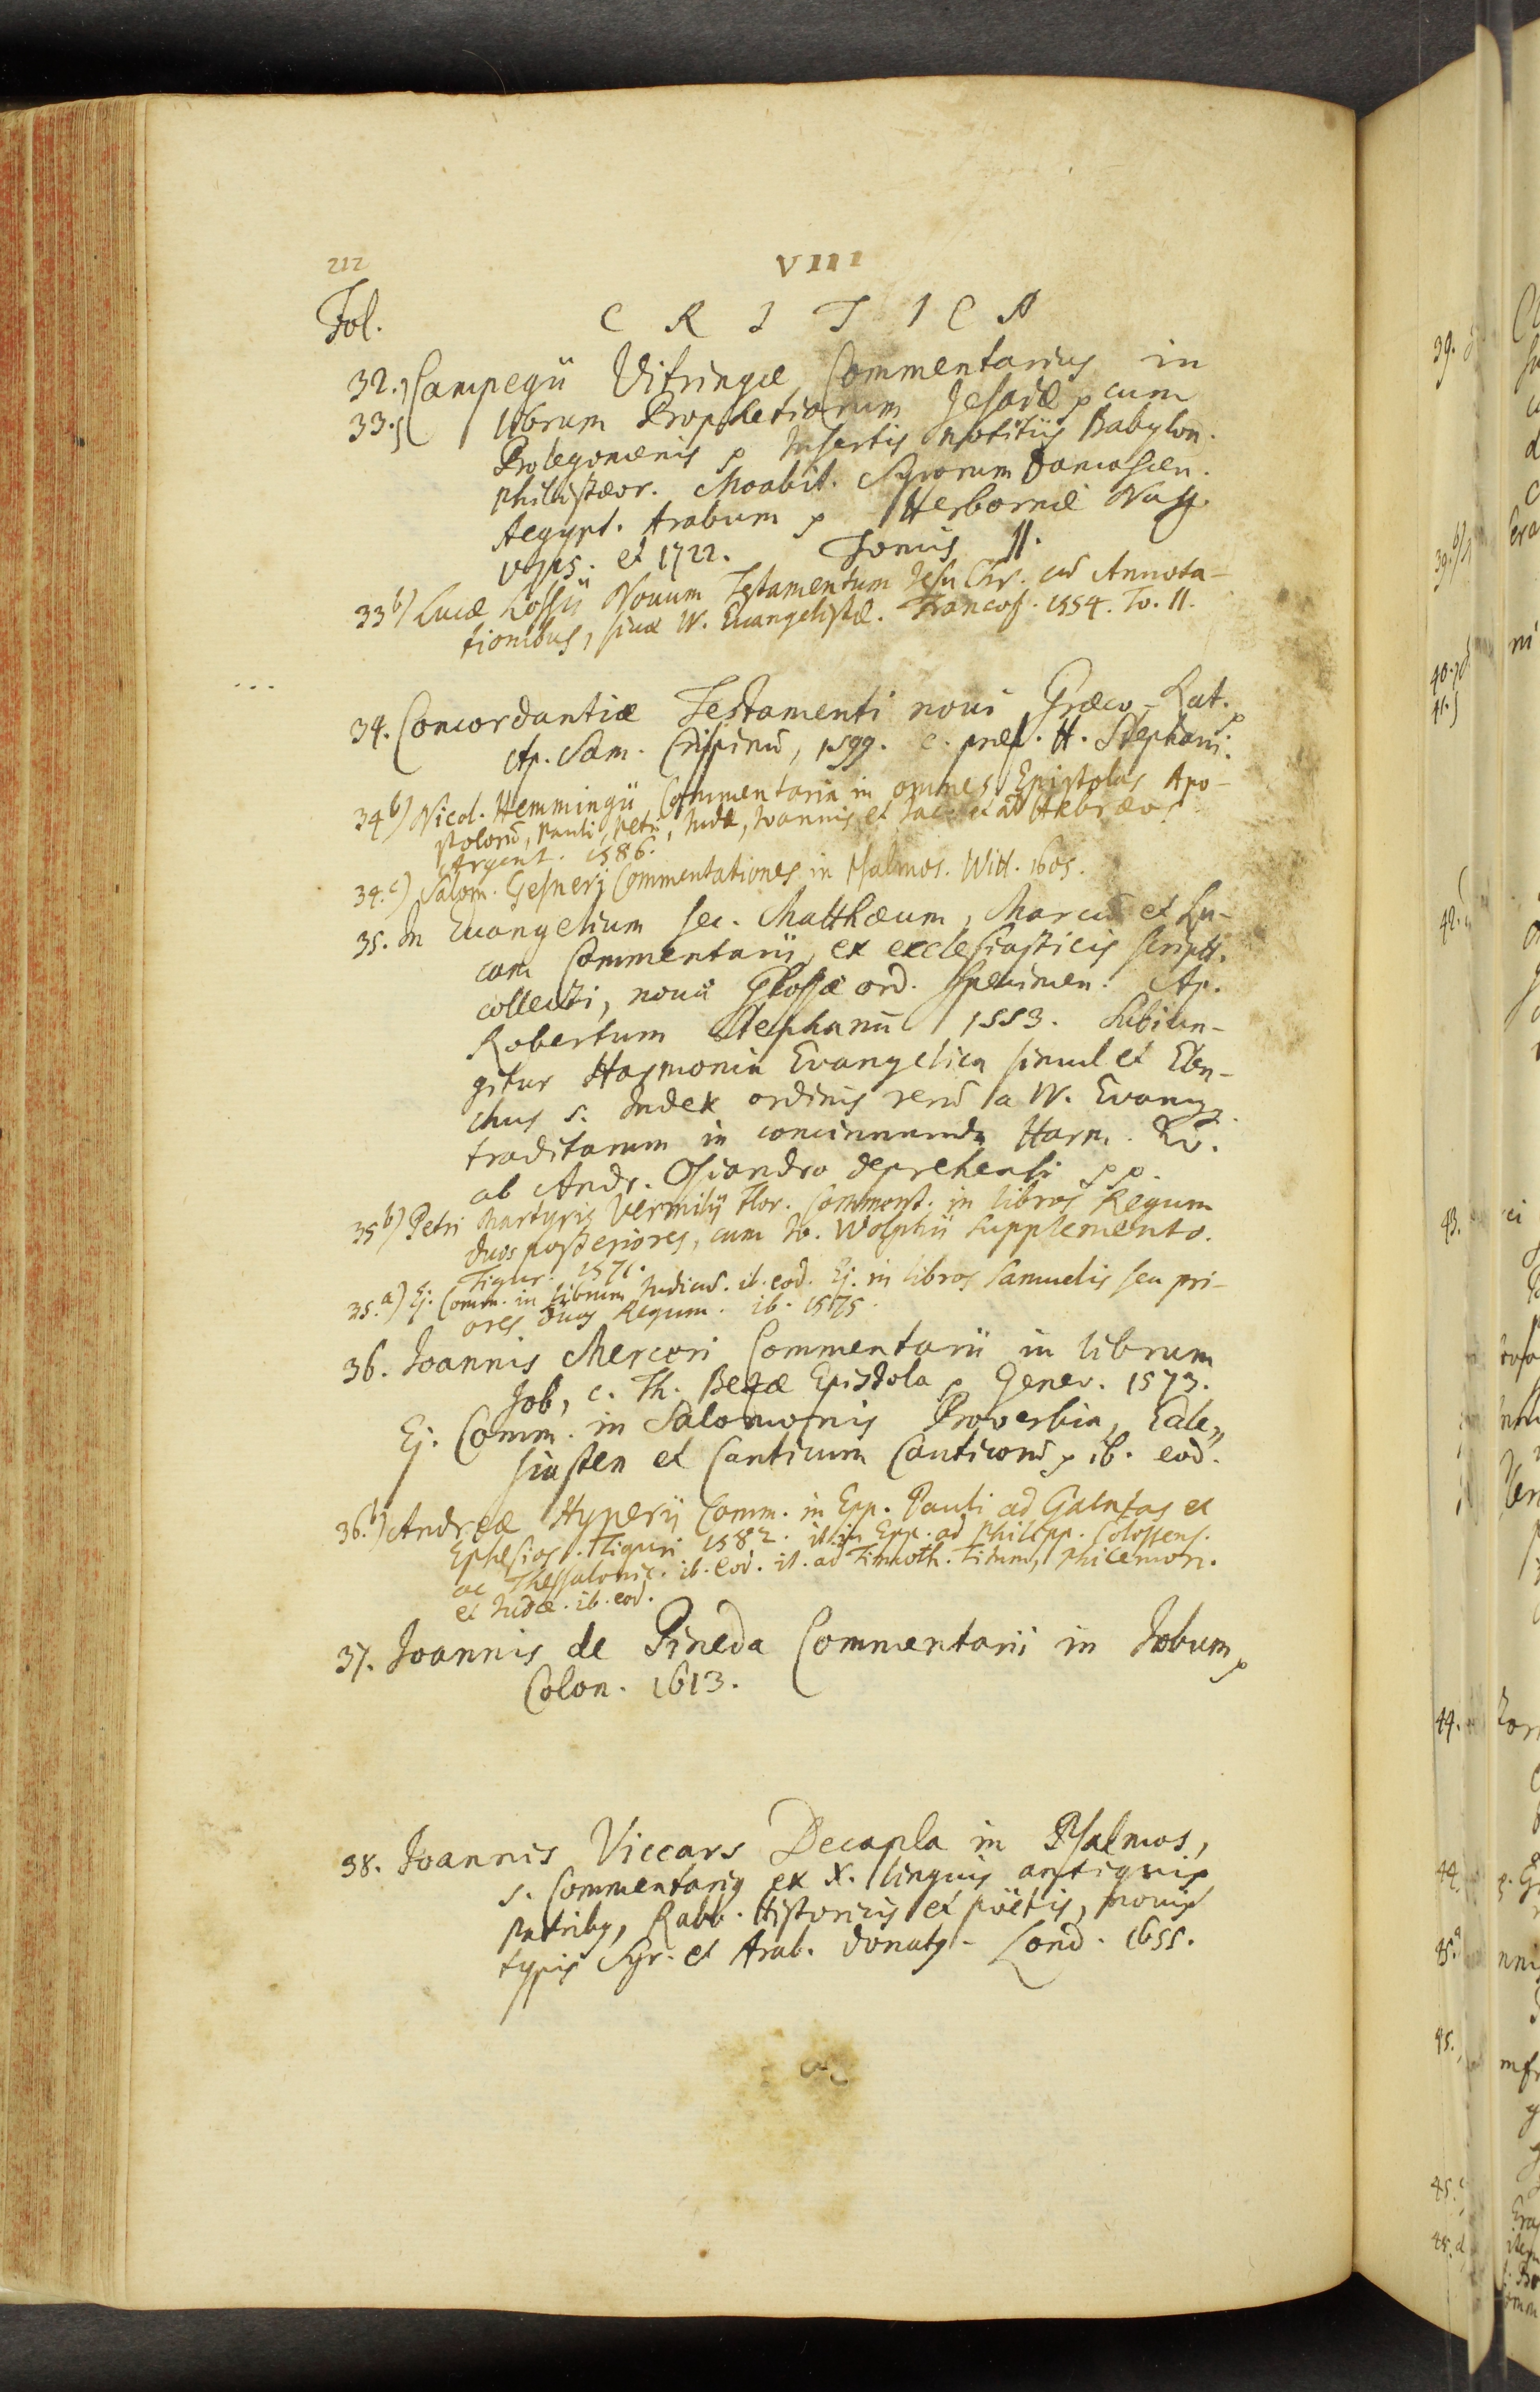 212
VIII
Fol. CRITICA
32. Campegii Vitringæ Commentarius in
33. librum Prophetiarum Jesaiæ p cum
Prolegomenis p Insertis notitiis Babylon.
philistæor. Moabit. Syrorum Damascen.
Aegypt. Arabum p Herbornæ Nass.
1715. et 1722. Tomis II.
33 b) Lucæ Lossii Novum Testamentum Jesu Chr. cū Annota-
tionibus, siue IV. Euangelistæ. Francof. 1554. To. II.
34. Concordantiæ Testamenti noui Græco-Lat. p
Ap. Sam. Crispinū, 1599. c. præf. H. Stephani.
34 b) Nicol. Hemmingii Commentaria in omnes Epistolas Apo-
stolorū, Pauli, Petri, Judæ, Joannis et Jac. et ad Hebræos.
Argent. 1586.
34. c) Salom. Gesneri Commentationes in Psalmos. Witt. 1605.
35. In Euangelium sec. Matthæum, Marcū et Lu-
cam Commentarii, ex ecclesiasticis scriptt.
collecti, nouæ Glossæ ord. specimen. Ap.
Robertum Stephanū 1553. Subiun-
gitur Harmonia Evangelica simul et Elen-
chus s. Index ordinis rerū a IV. Evangg.
traditarum in concinnanda Harm. Ev.
ab Andr. Osiandro deprehensi pp.
35 b) Petri Martyris Vermilij Flor. Comment. in libros Regum
duos posteriores, cum Jo. Wolphii Supplemento.
Tigur. 1571.
35. a) Ej. Comm. in librum Judicū. ib. eod. Ej. in libros Samuelis seu pri-
ores duos Regum. ib. 1575.
36. Joannis Merceri Commentarii in librum
Job, c. Th. Bezæ Epistola p Genev. 1573.
Ej. Comm. in Salomonis Proverbia, Eccle„
siasten et Canticum Canticorū p ib. eod.
36. b) Andreæ Hyperij Comm. in Epp. Pauli ad Galatas et
Ephesios. Tiguri 1582. it. in Epp. ad Philipp. Colossens.
ac Thessalonic. ib. eod. it. ad Timoth. Titum, Philemon.
et Judæ. ib. eod.
37. Joannis de Pineda Commentarii in Jobum p
Colon. 1613.
38. Joannis Viccars Decapla in Psalmos,
s. Commentarius ex X. linguis antiquis
patribus, Rabb. Historicis et poëtis, nouis
typis Syr. et Arab. donatus. Lond. 1655.
39.
40.
41.
42.
43.
44.
45.